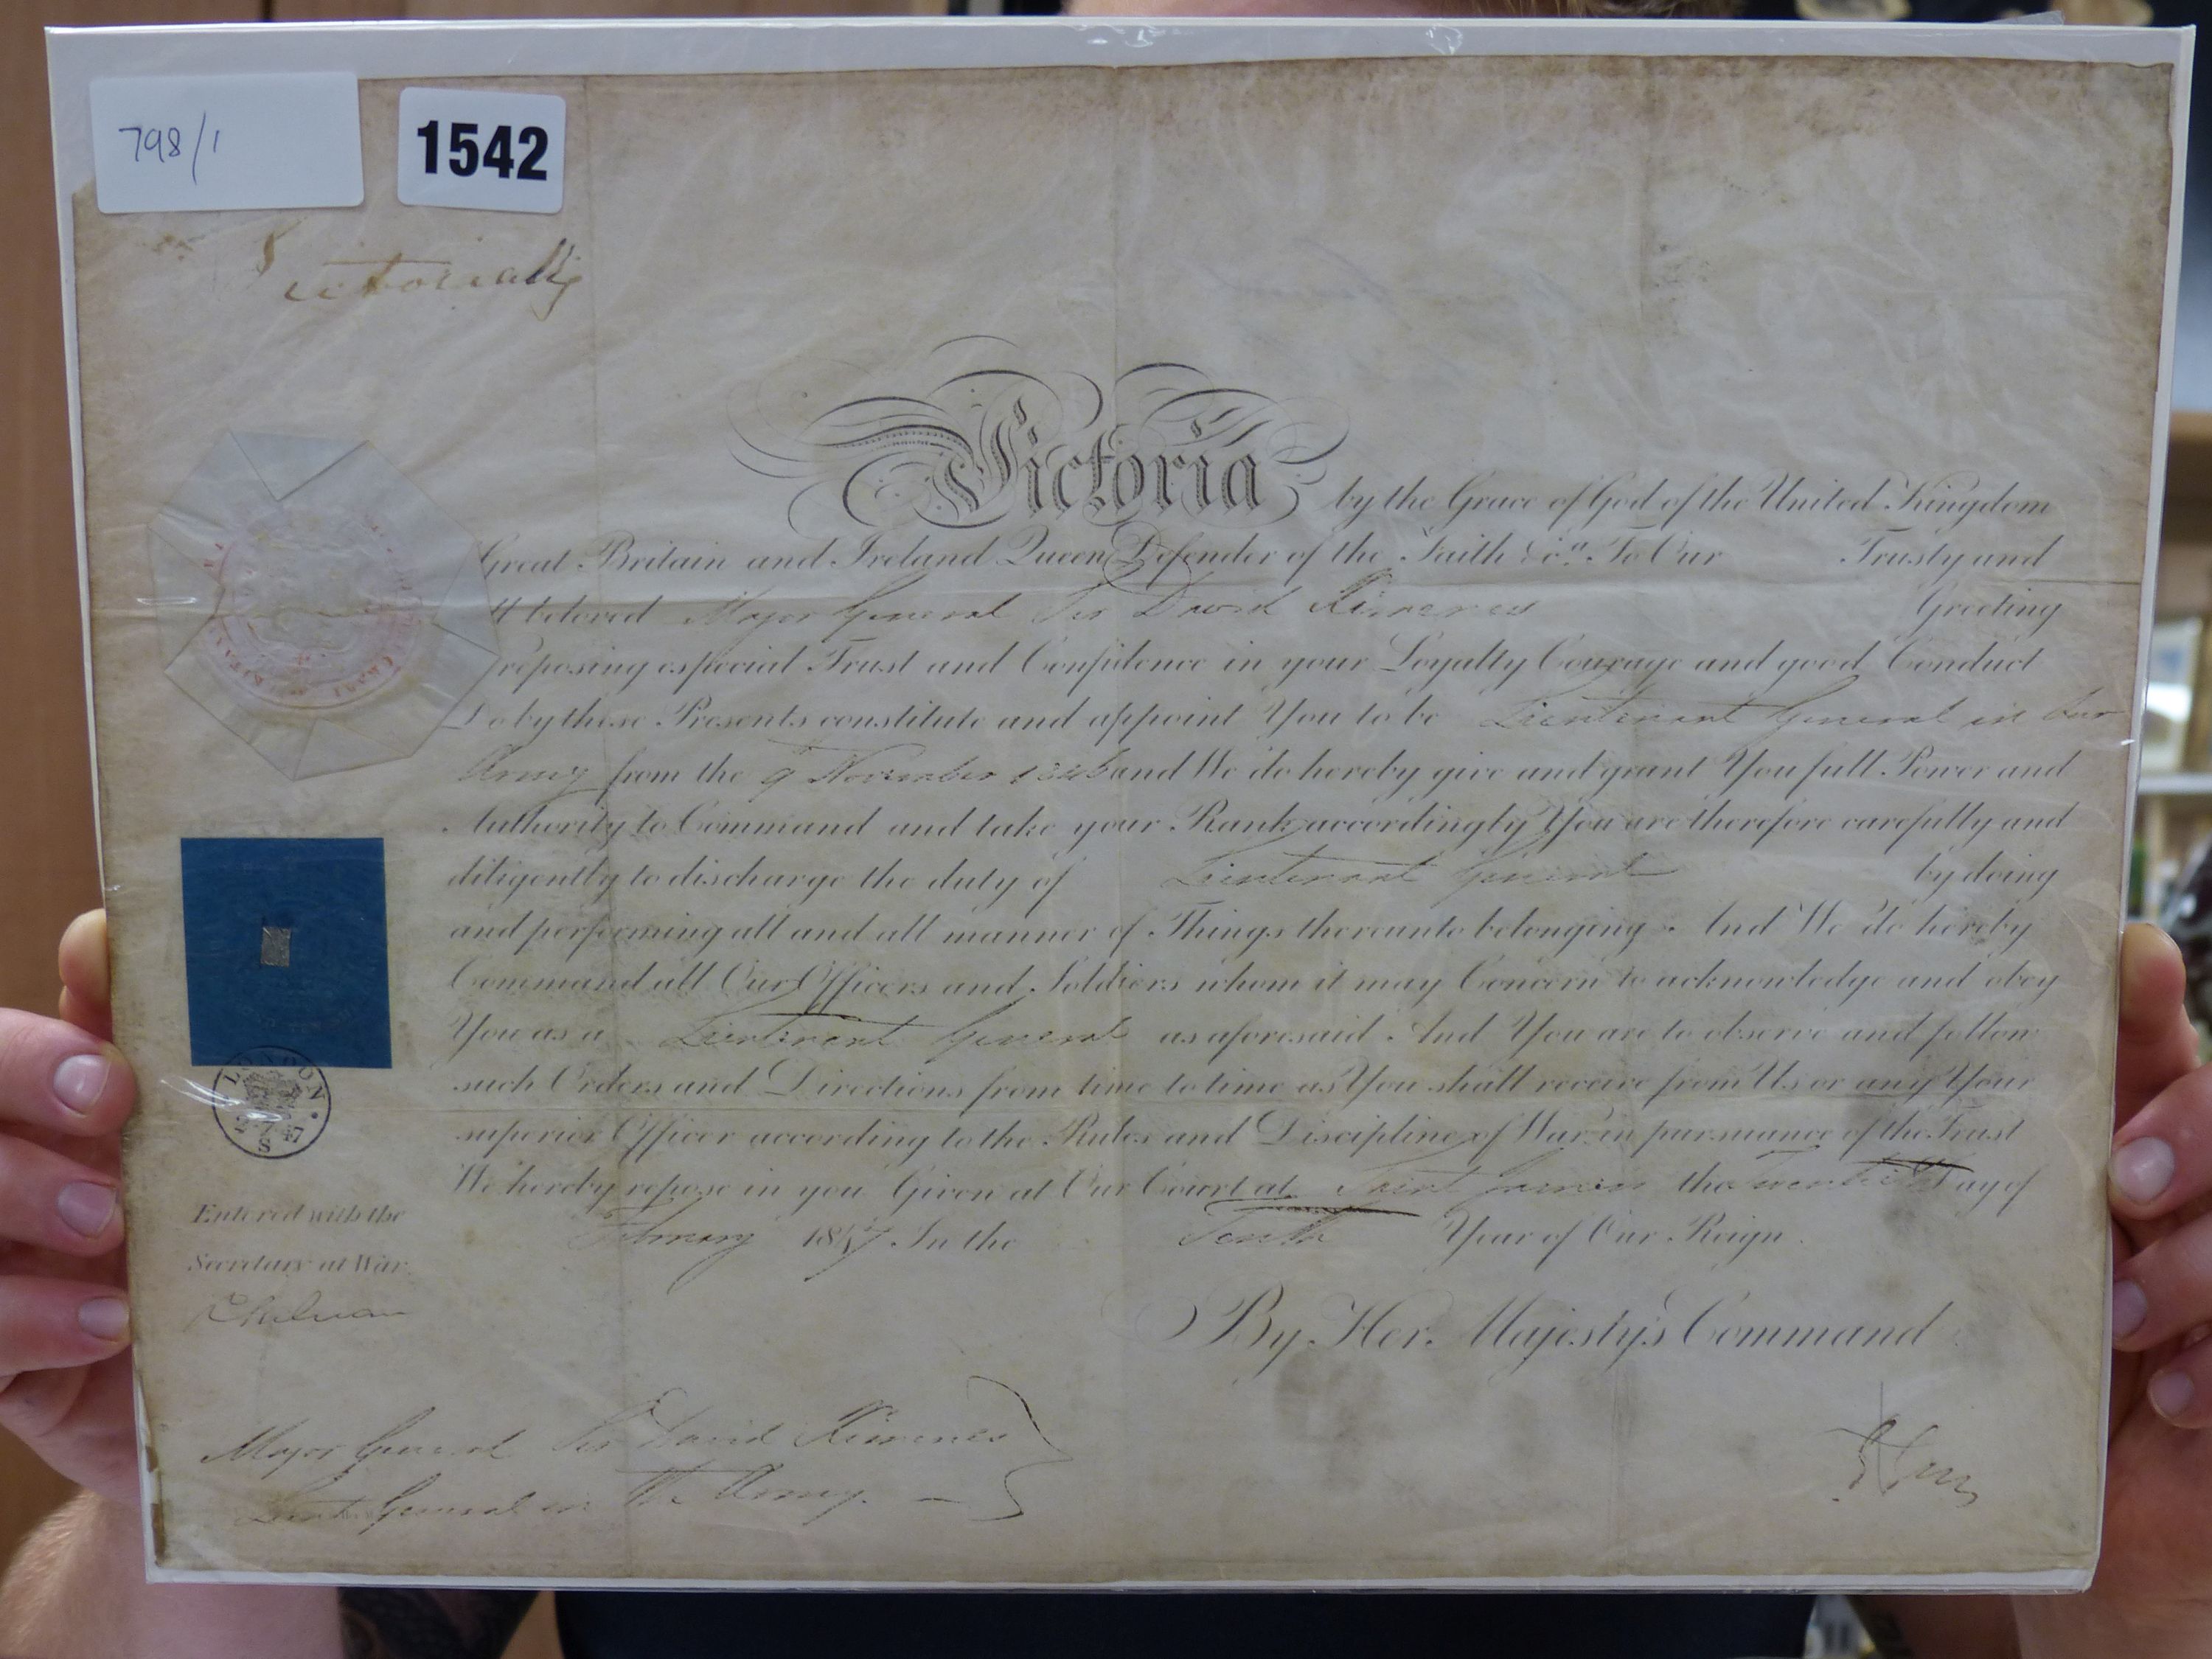 798/1
1542
Victoria R
Victoria by the Grace of God of the United Kingdom
Great Britain and Ireland Queen Defender of the Faith &ca. To Our Trusty and
beloved Major General Sir David Ximenes Greeting
reposing especial Trust and Confidence in your Loyalty Courage and good Conduct
Do by these Presents constitute and appoint You to be Lieutenant General in Our
Army from the 9 November 1846 and We do hereby give and grant You full Power and
Authority to Command and take your Rank accordingly You are therefore carefully and
diligently to discharge the duty of Lieutenant General by doing
and performing all and all manner of Things thereunto belonging. And We do hereby
Command all Our Officers and Soldiers whom it may Concern to acknowledge and obey
You as a Lieutenant General as aforesaid. And You are to observe and follow
such Orders and Directions from time to time as You shall receive from Us or any Your
superior Officer according to the Rules and Discipline of War in pursuance of the Trust
We hereby repose in you Given at Our Court at Saint James's the Twentieth Day of
February 1847 In the Tenth Year of Our Reign.
By Her Majesty's Command
LONDON
Entered with the
Secretary at War.
Major General Sir David Ximenes
Lieut. General in the Army.